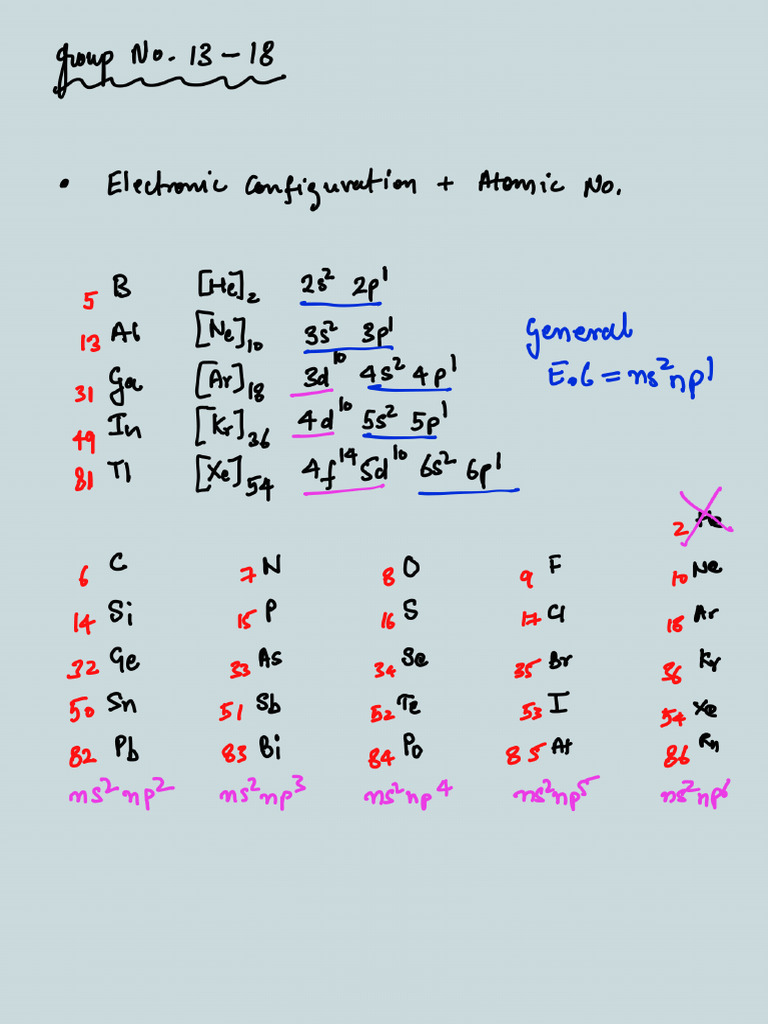 group No. 13 – 18
• Electronic Configuration + Atomic No.
5 B [He]₂ 2s² 2p¹
13 Al [Ne]₁₀ 3s² 3p¹
General
31 Ga [Ar]₁₈ 3d¹⁰ 4s² 4p¹
E.C = ns²np¹
49 In [Kr]₃₆ 4d¹⁰ 5s² 5p¹
81 Tl [Xe]₅₄ 4f¹⁴ 5d¹⁰ 6s² 6p¹
2
6 C 7 N 8 O 9 F 10 Ne
14 Si 15 P 16 S 17 Cl 18 Ar
32 Ge 33 As 34 Se 35 Br 36 Kr
50 Sn 51 Sb 52 Te 53 I 54 Xe
82 Pb 83 Bi 84 Po 85 At 86 Rn
ns²np² ns²np³ ns²np⁴ ns²np⁵ ns²np⁶